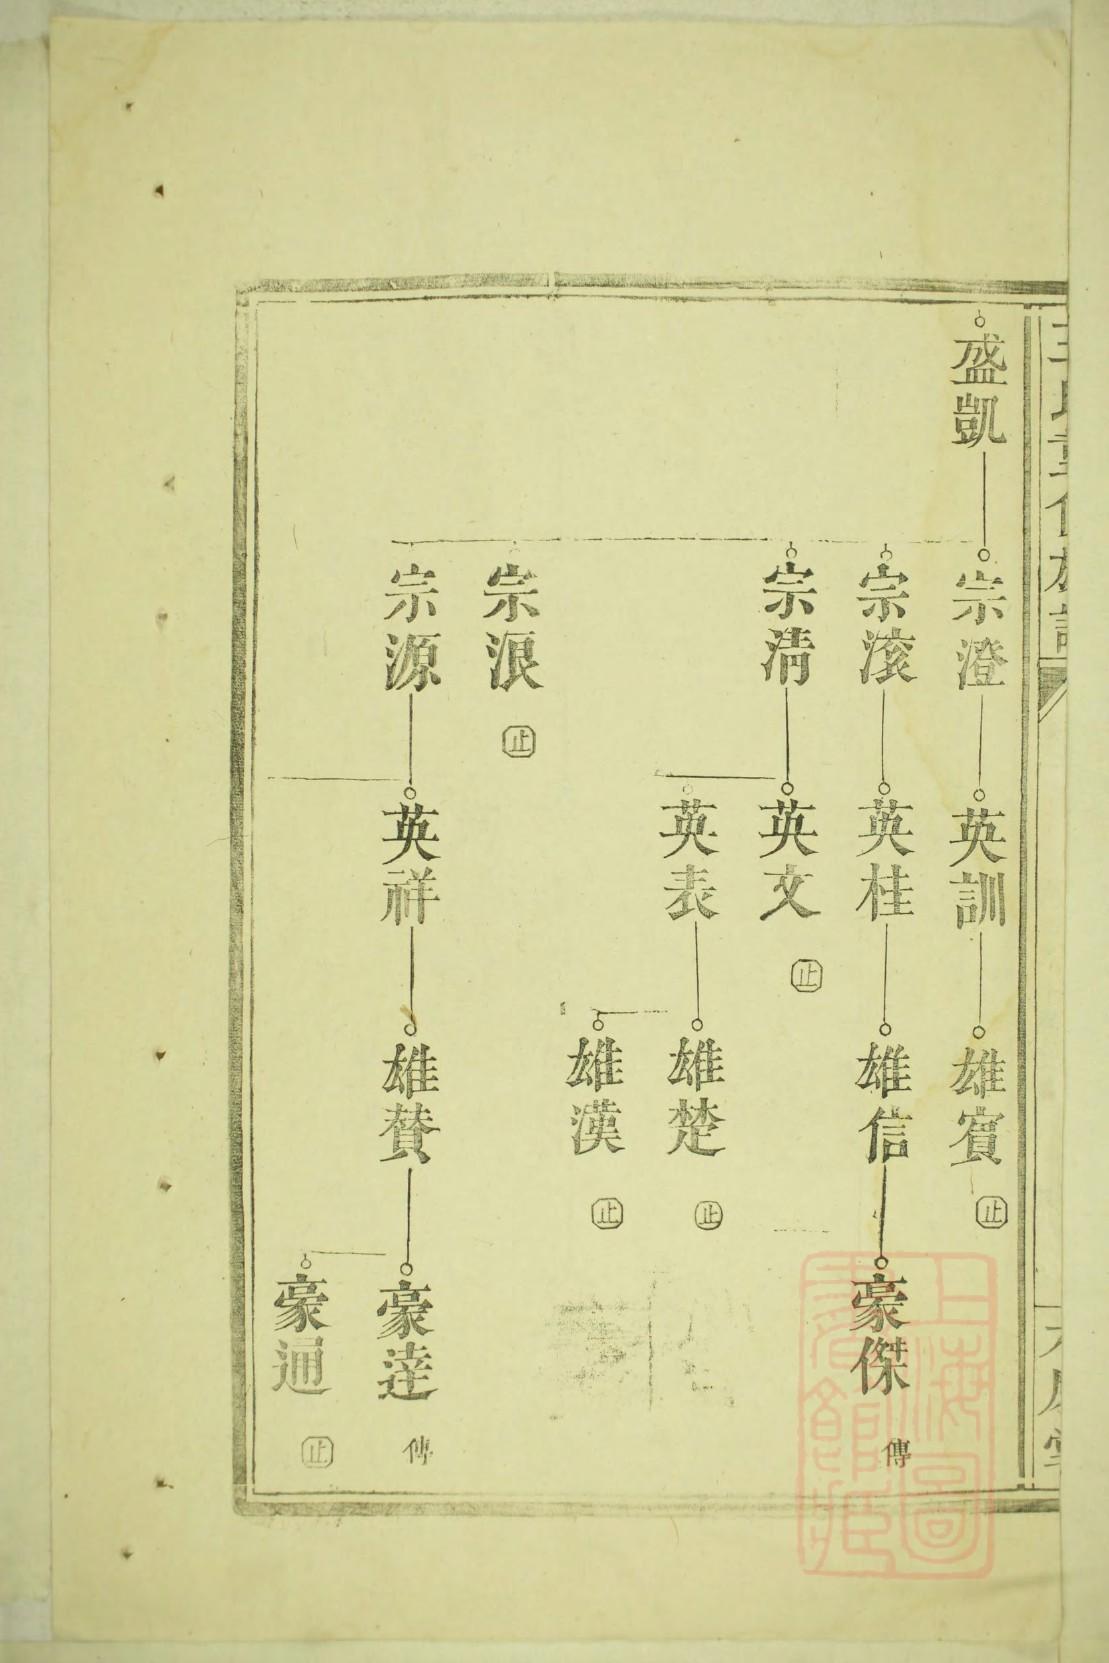 盛凱
宗澄
英訓
雄賓
止
宗滾
英桂
雄信
豪傑
傳
宗清
英文
止
英表
雄楚
止
雄漢
止
宗浪
止
宗源
英祥
雄贊
豪達
傳
豪通
止
上海圖
書館藏